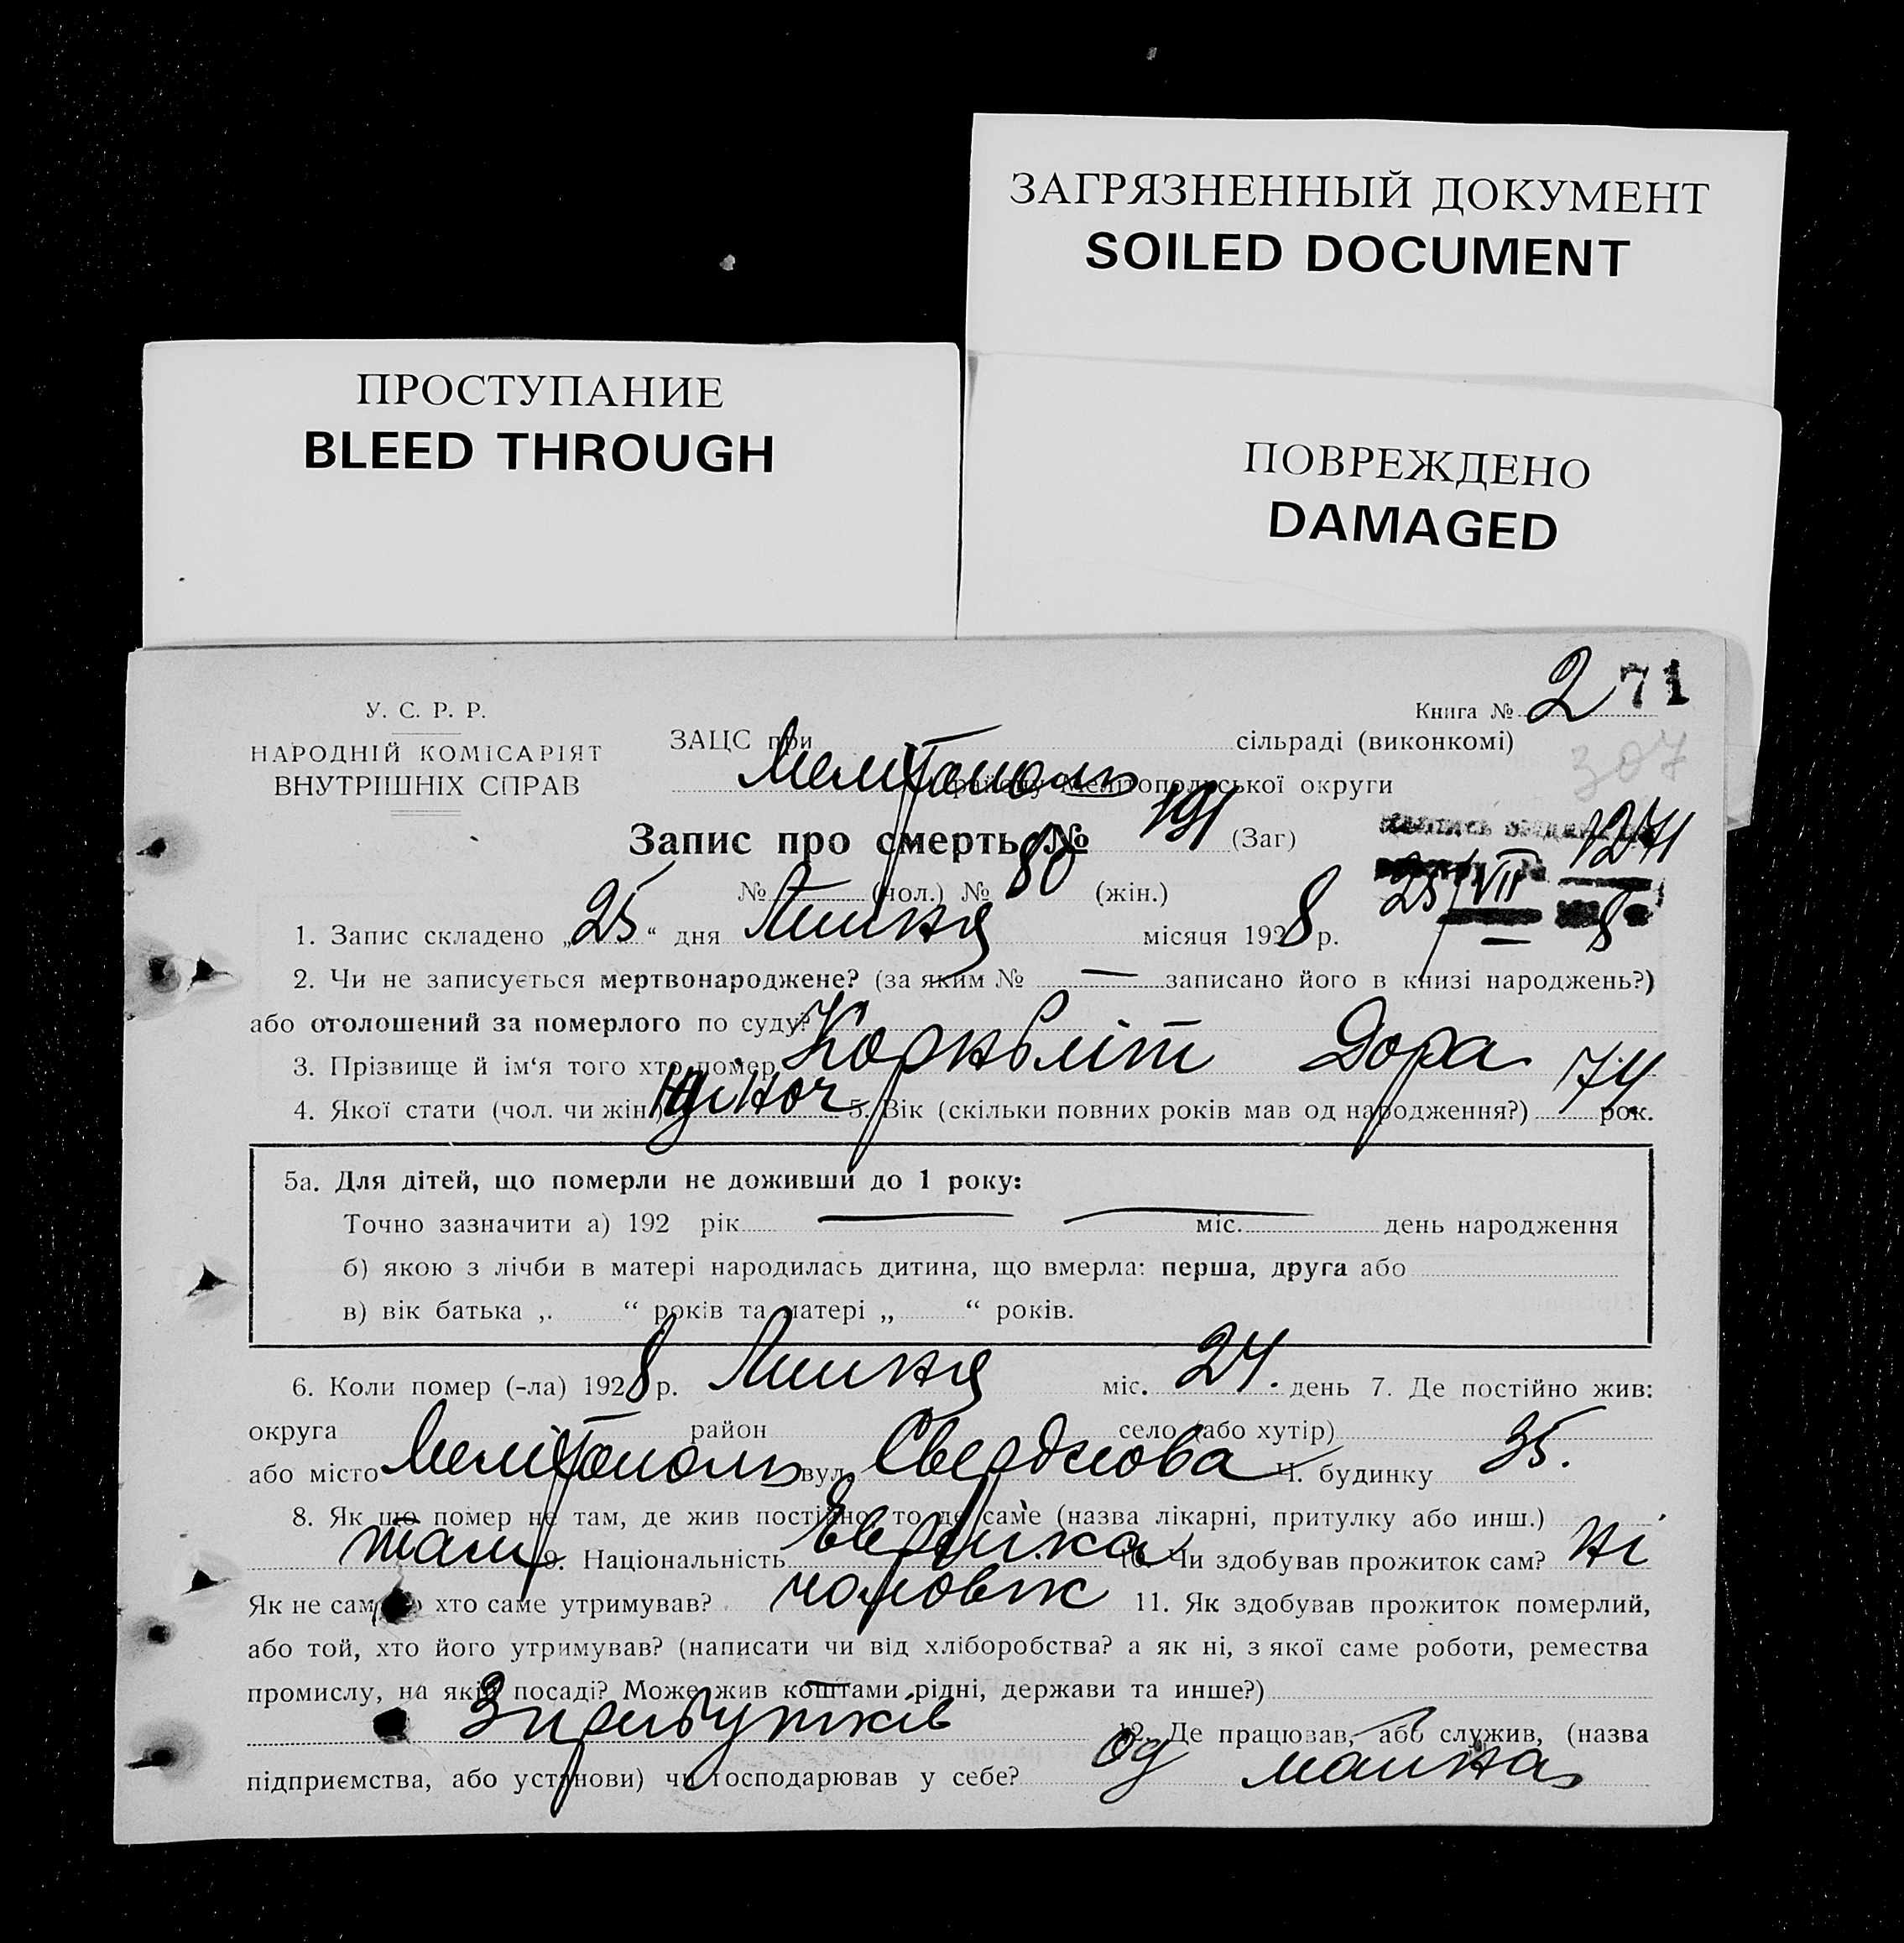 ЗАГРЯЗНЕННЫЙ ДОКУМЕНТ
SOILED DOCUMENT
ПРОСТУПАНИЕ
BLEED THROUGH
ПОВРЕЖДЕНО
DAMAGED
Книга № 2 71
У. С. Р. Р.
НАРОДНІЙ КОМІСАРІЯТ
ВНУТРІШНІХ СПРАВ
ЗАЦС при сільраді (виконкомі)
307
Мелітополь району Мелітопольської округи
Запис про смерть № 191 (Заг)
1271
№ — (чол.) № 80 (жін.)
25/VII 8
1. Запис складено „25“ дня Липня місяця 1928 р.
2. Чи не записується мертвонароджене? (за яким № — записано його в книзі народжень?)
або отолошений за померлого по суду?
3. Прізвище й ім‘я того хто помер Корнбліт Дора
4. Якої стати (чол. чи жін.) жіноч 5. Вік (скільки повних років мав од народження?) 74 рок.
5а. Для дітей, що померли не доживши до 1 року:
Точно зазначити а) 192 рік — міс. — день народження
б) якою з лічби в матері народилась дитина, що вмерла: перша, друга або
в) вік батька „ “ років та матері „ “ років.
6. Коли помер (-ла) 1928 р. Липня міс. 24. день 7. Де постійно жив:
округа район село (або хутір)
або місто Мелітополь вул. Свердлова Ч. будинку 35.
8. Як що помер не там, де жив постійно, то де саме (назва лікарні, притулку або инш.)
там 9. Національність Еврейка 10. Чи здобував прожиток сам? Ні
Як не сам, то хто саме утримував? чоловік 11. Як здобував прожиток померлий,
або той, хто його утримував? (написати чи від хліборобства? а як ні, з якої саме роботи, ремества
промислу, на якій посаді? Може жив коштами рідні, держави та инше?)
З прибутків 12. Де працював, або служив, (назва
підприємства, або установи) чи господарював у себе? од майна